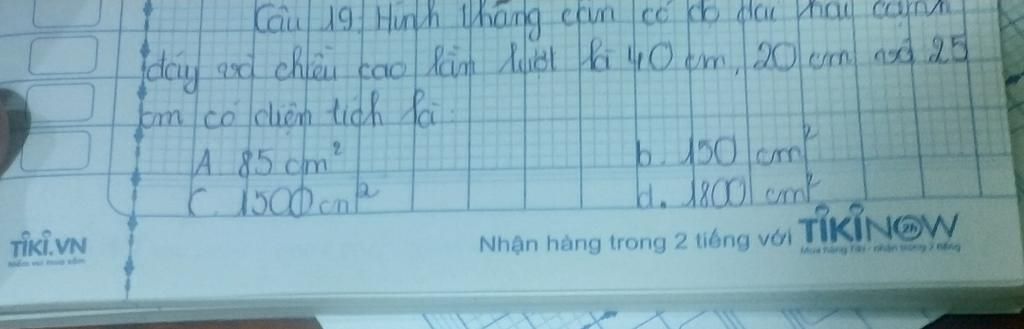 Câu 19. Hình thang cân có độ dài hai cạnh
đáy và chiều cao lần lượt là 40 cm, 20 cm và 25
cm có diện tích là
A 85 cm² b. 150 cm²
C. 1500 cm² d. 1800 cm²
TIKI.VN Nhận hàng trong 2 tiếng với TIKINOW 2h